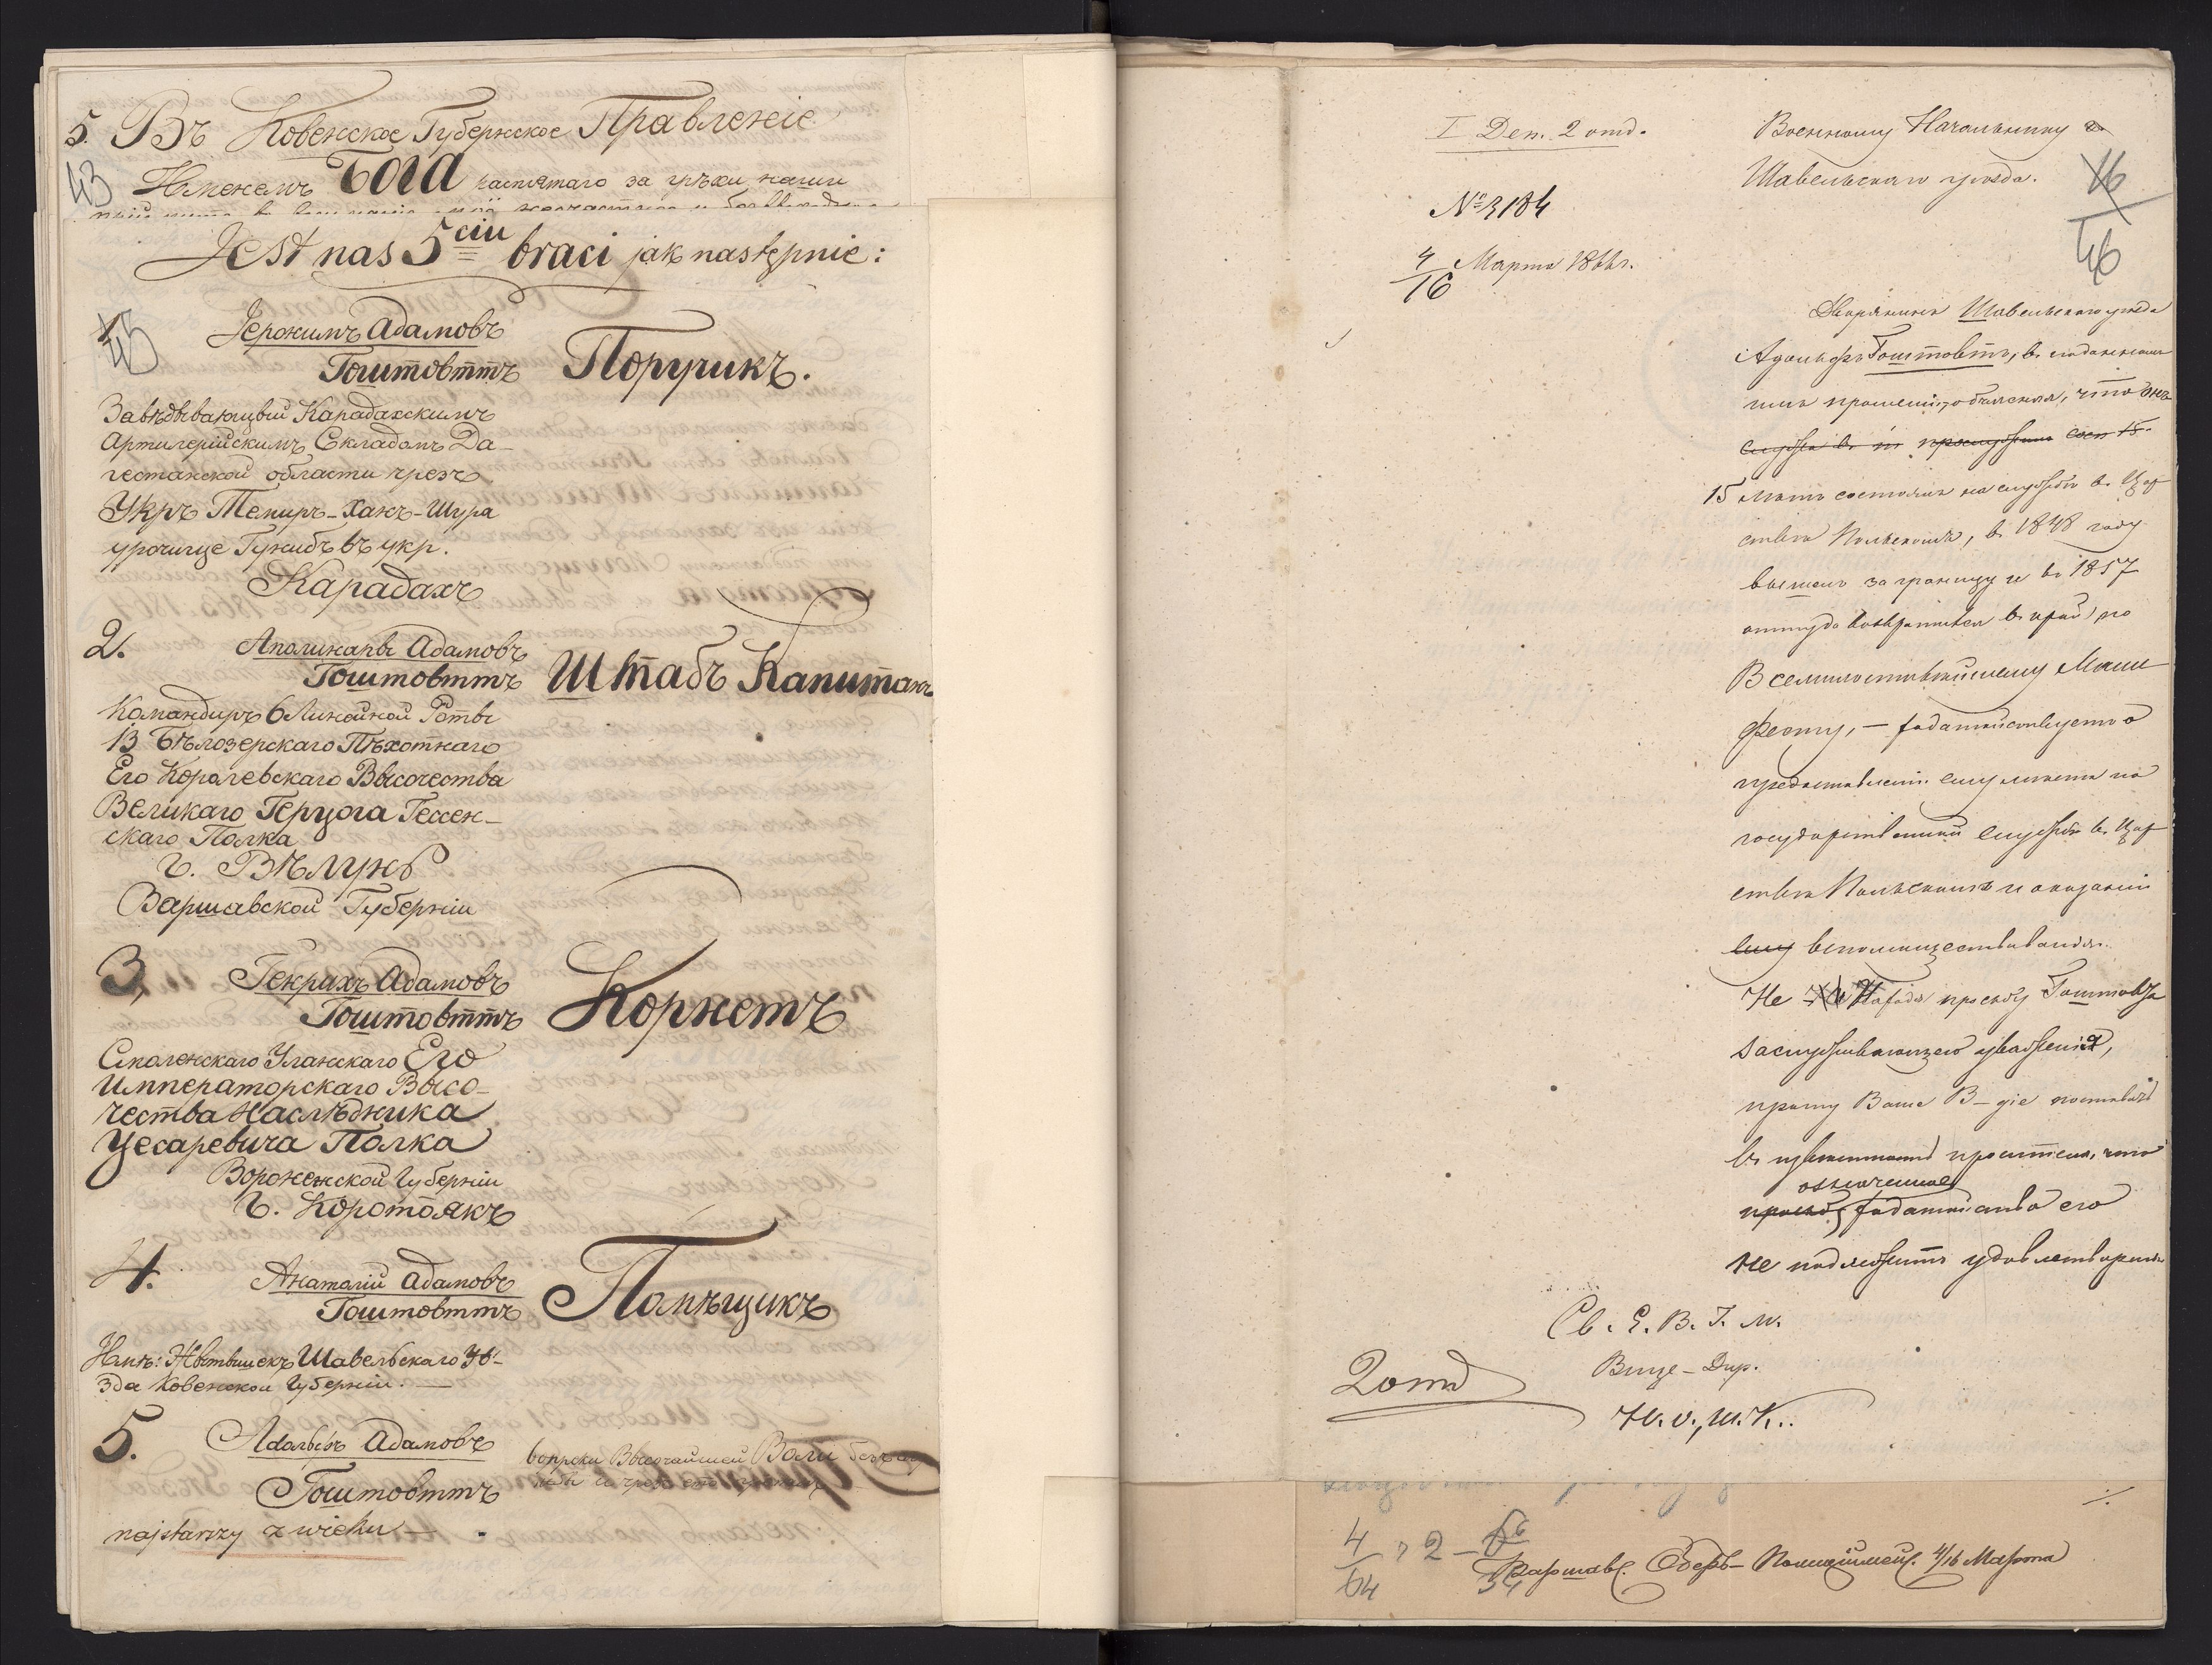 5. Въ Ковенское Губернское Правленіе
43
Именемъ Бога распятаго за грѣхи наши
Jest nas 5ciu braci jak następnie:
1
43
Іеронимъ Адамовъ
Гоштовттъ Поручикъ.
Завѣдывающій Карадахскимъ
Артилерійскимъ Складомъ Да-
гестанской области чрезъ
Укръ Темиръ-Ханъ-Шура
урочище Гунибъ въ укр.
Карадахъ
2. Аполинарій Адамовъ
Гоштовттъ Штабъ Капитанъ
Командиръ 6 Линейной Роты
13 Бѣлозерскаго Пѣхотнаго
Его Королевскаго Высочества
Великаго Герцога Гессен-
скаго Полка
г. Вѣлунь
Варшавской Губерніи
3, Генрихъ Адамовъ
Гоштовттъ Корнетъ
Смоленскаго Уланскаго Его
Императорскаго Высо-
чества Наслѣдника
Цесаревича Полка
Воронежской Губерніи
г. Коротоякъ
4. Анатолій Адамовъ
Гоштовттъ Помѣщикъ
Шавельскаго Уѣ-
зда Ковенской Губерніи.
5. Адольфъ Адамовъ
вопреки Высочайшей Воли
Гоштовттъ
najstarszy z wieku
I Деп. 2 отд.
№ 3184
4/16 Марта 1866 г.
Военному Начальнику
Шавельскаго уѣзда.
16
46
Дворянинъ Шавельскаго уѣзда
Адольфъ Гоштовтъ, въ поданномъ
мнѣ прошеніи, объясняя, что онъ
15 лѣтъ состоялъ на службѣ въ Цар
ствѣ Польскомъ, въ 1848 году
вышелъ за границу и въ 1857
оттуда возвратился въ край по
Всемилостивѣйшему Мани
фесту, — ходатайствуетъ о
предоставленіи ему мѣста по
государственной службѣ въ Цар
ствѣ Польскомъ и оказаніи
ему вспомоществованія.
Не Находя просьбу Гоштовта
заслуживающею уваженія,
прошу Ваше В—діе поставить
въ извѣстность просителя, что
означенное
просьба ходатайство его
не подлежитъ удовлетворенію
Св. Е. В. Г. М.
Вице-Дир.
2 отд
Н. О., М. К..
4/64 2
Варшавс. Оберъ-Полицiймейс. 4/16 Марта